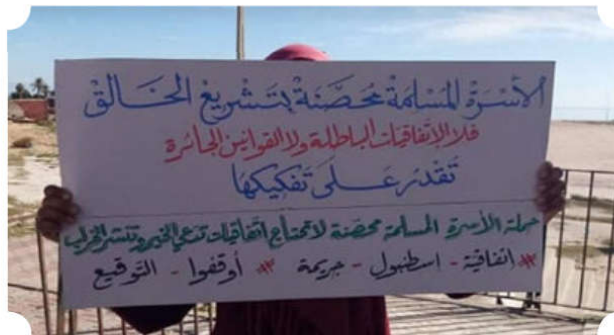 الأُسْرَةُ المُسْلمَةُ مُحَصَّنَةٌ بِتَشْرِيعِ الخَالِقْ
فلا الاتفاقيات الباطلة ولا القوانين الجائرة
تَقْدِرُ عَلَى تَفْكِيكِهَا
حملة الأسرة المسلمة محصّنة لا تحتاج اتفاقيات تدّعي الخير وتنشر الخراب
# اتفاقية - اسطنبول - جريمة # أوقفوا - التّوقيع